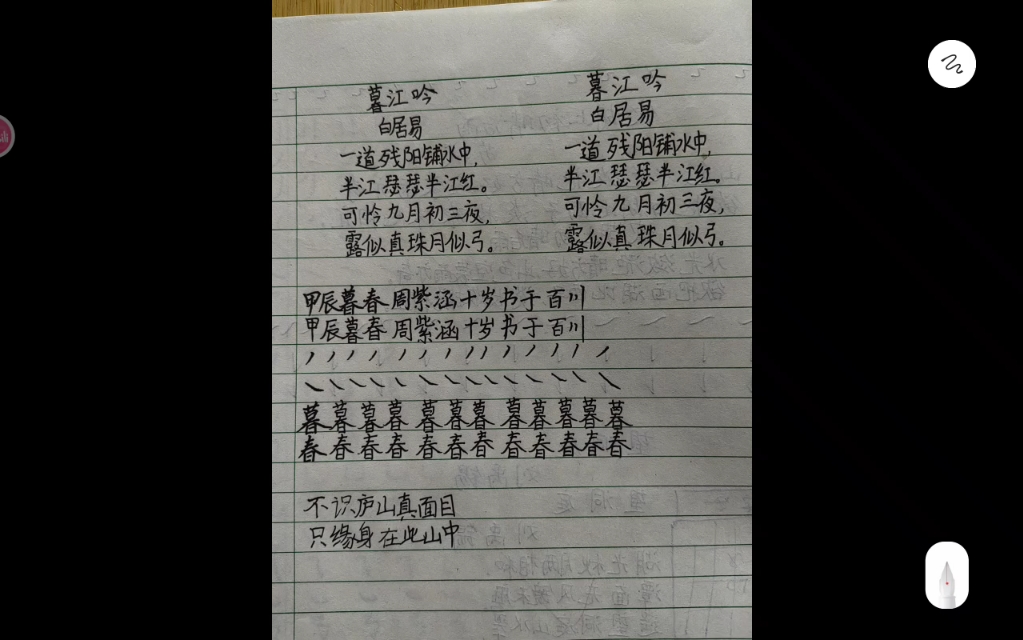 暮江吟 暮江吟
白居易 白居易
一道残阳铺水中, 一道残阳铺水中,
半江瑟瑟半江红。 半江瑟瑟半江红。
可怜九月初三夜, 可怜九月初三夜,
露似真珠月似弓。 露似真珠月似弓。
甲辰暮春周紫涵十岁书于百川
甲辰暮春周紫涵十岁书于百川
暮暮暮暮暮暮暮暮暮暮暮暮
春春春春春春春春春春春春
不识庐山真面目
只缘身在此山中